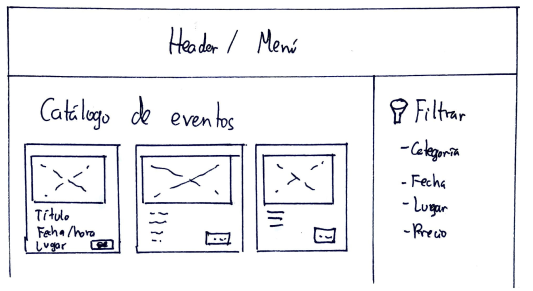 Header / Menú
Catálogo de eventos
Título
Fecha/hora
Lugar
Filtrar
- Categoría
- Fecha
- Lugar
- Precio